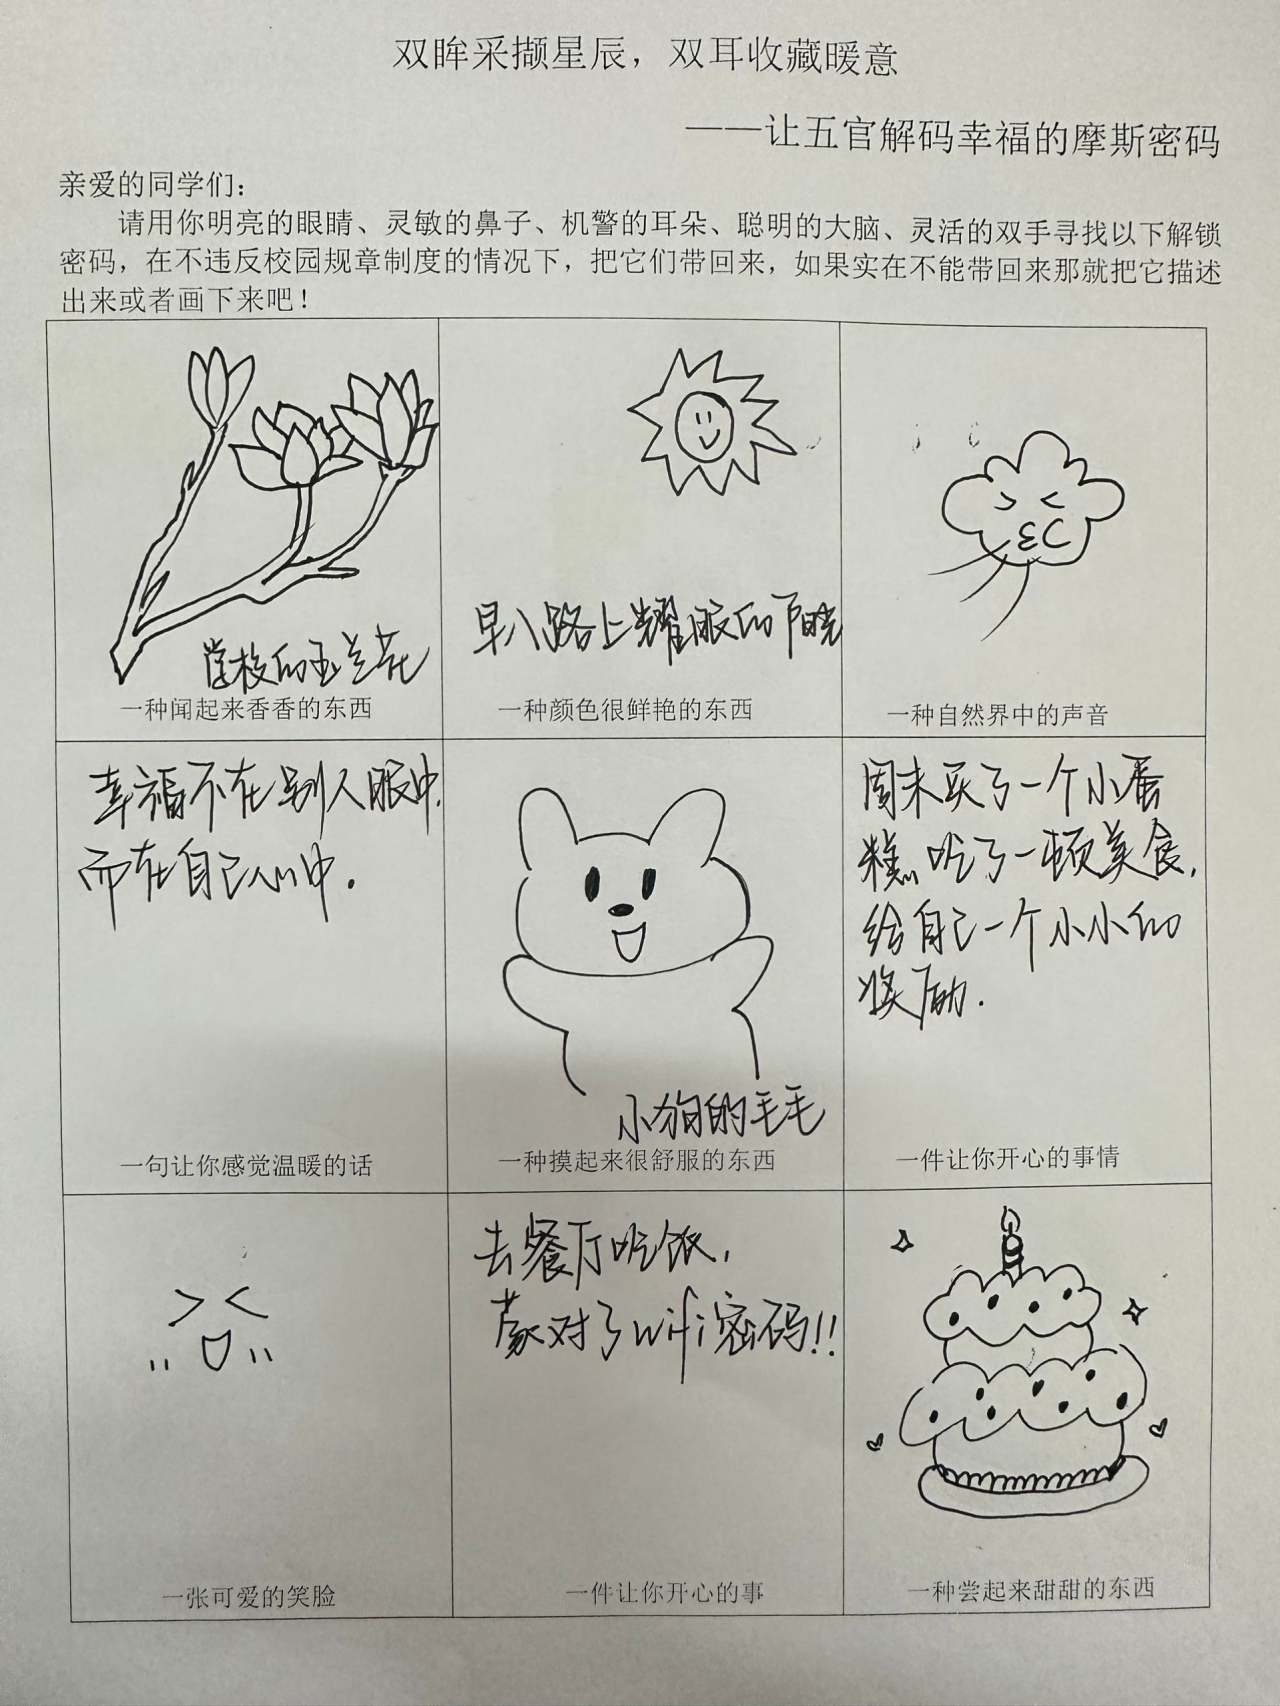 双眸采撷星辰，双耳收藏暖意
——让五官解码幸福的摩斯密码
亲爱的同学们：
请用你明亮的眼睛、灵敏的鼻子、机警的耳朵、聪明的大脑、灵活的双手寻找以下解锁
密码，在不违反校园规章制度的情况下，把它们带回来，如果实在不能带回来那就把它描述
出来或者画下来吧！
学校的玉兰花
一种闻起来香香的东西
早八路上耀眼的
一种颜色很鲜艳的东西
一种自然界中的声音
幸福不在别人眼中，
而在自己心中．
一句让你感觉温暖的话
小狗的毛毛
一种摸起来很舒服的东西
周末买了一个小蛋
糕，吃了一顿美食，
给自己一个小小的
奖励．
一件让你开心的事情
一张可爱的笑脸
去餐厅吃饭，
蒙对了wifi密码!!
一件让你开心的事
一种尝起来甜甜的东西